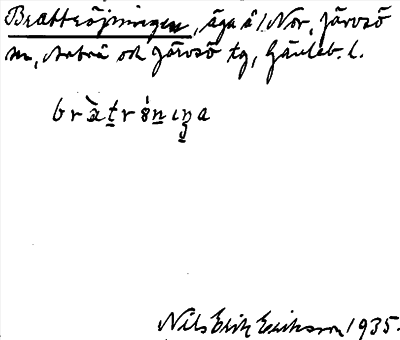 Brattröjningen, äga å l. Nor, Järvsö
sn, Arbrå och Järvsö tg, Gävleb. l.
Nils Erik Eriksson 1935.